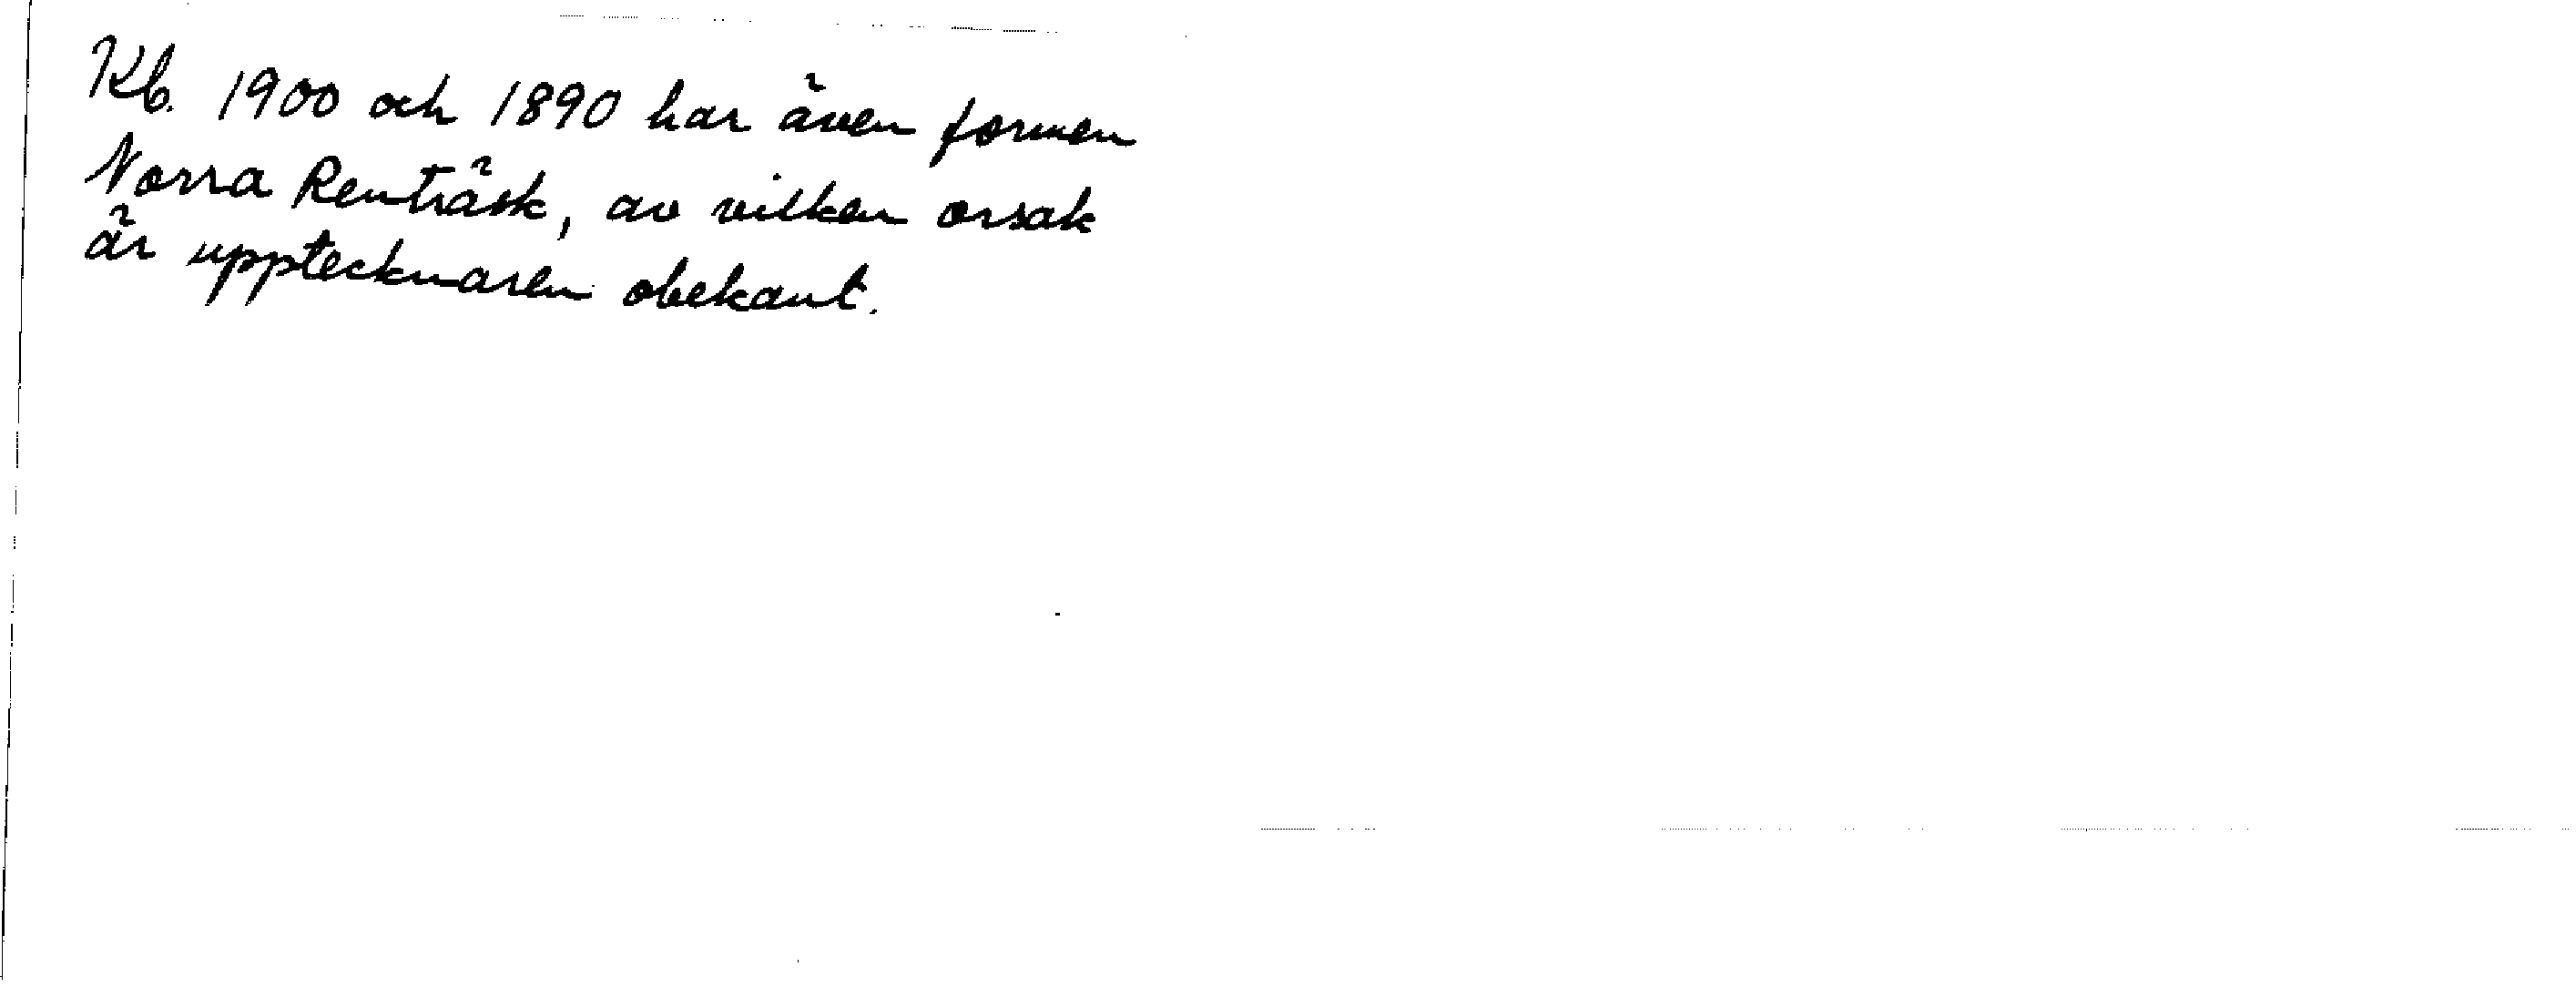 Kb. 1900 och 1890 har även formen
Norra Renträsk, av vilken orsak
är upptecknaren obekant.